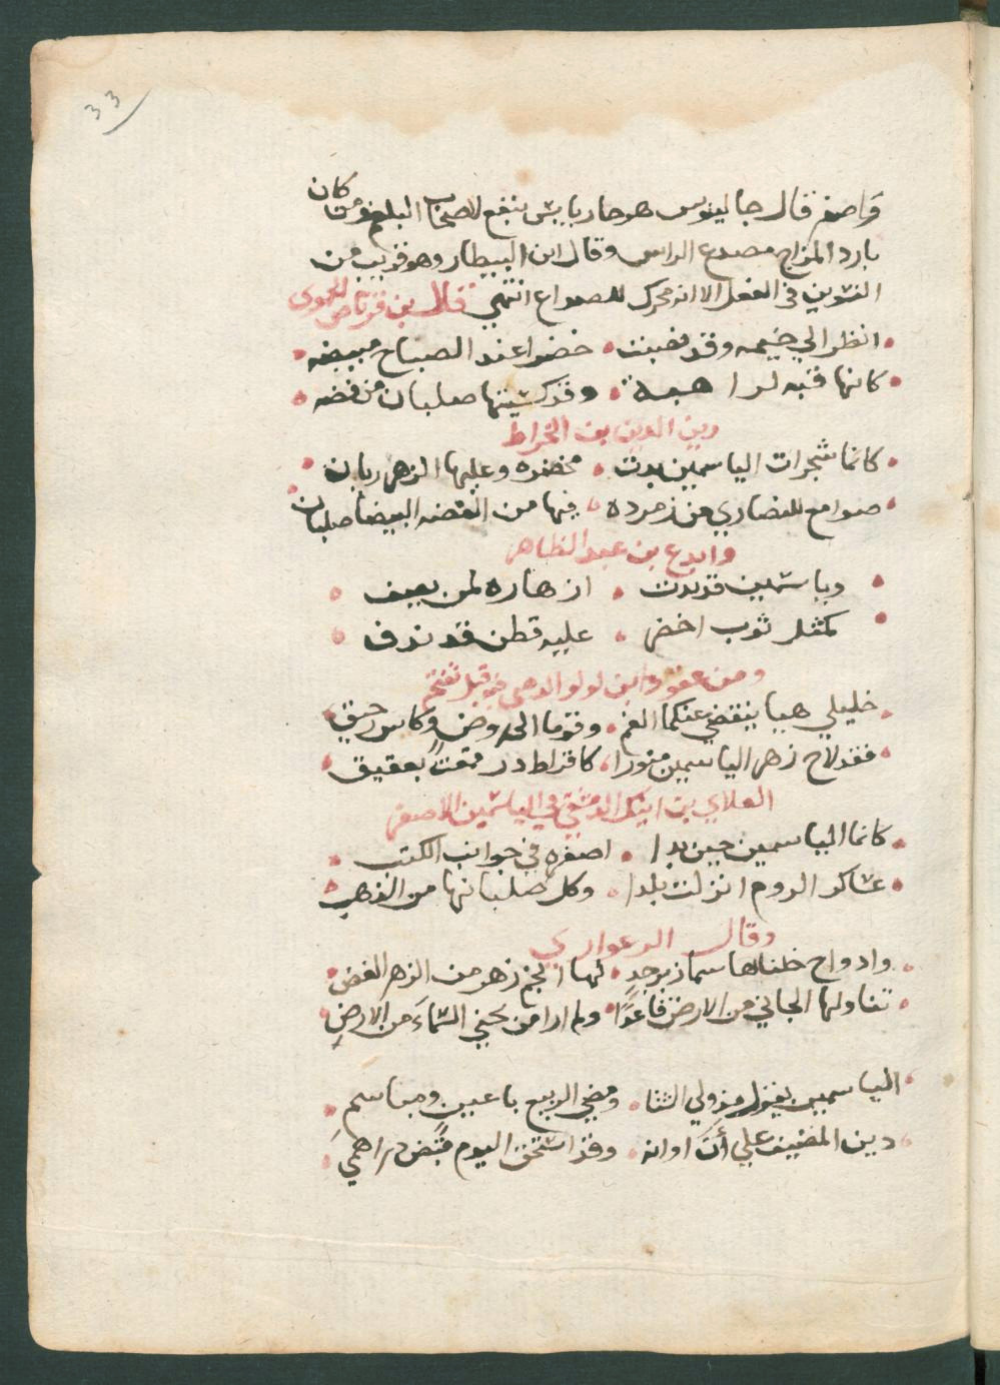 33
واصفر قال جالينوس هو حار يابس ينفع لاصحاب البلغم ومن كان
بارد المزاج مصدع الراس وقال ابن البيطار وهو قريب من
النسرين في الفعل الا انه محرك للصداع انتهي قال بن قرناص الحموى
انظر الي خيمه وقد نصبت خضرا عند الصباح مبيضه
كانها قبه لراهبة وقد كستها صلبان من فضه
زين الدين بن الخراط
كانما شجرات الياسمين بدت مخضره وعليها الزهر ريان
صوامع للنصاري من زمرده فيها من الفضه البيضا صلبان
وابدع بن عبد الظاهر
وياسمين قد بدت ازهاره لمن يصف
كمثل ثوب اخضر عليه قطن قد ندف
ومن عقود ابن لولو الدهبي فيه قبل تفتح
خليلي هبا ينقضي عنكما الغم وقوما الي روض وكاس رحيق
فقد لاح زهر الياسمين منورا كاقراط در قمعت بعقيق
العلاي بن ايبك الدمشقي في الياسمين الاصفر
كانما الياسمين حين بدا اصفره في جوانب الكتب
عساكر الروم انزلت بلدا وكل صلبانها من الذهب
وقال
وادواح خلناها سما زبرجد لها انجم زهر من الزهر الغض
تناولها الجاني من الارض قاعدًا ولم ار من يجني السماءَ من الارضِ
الياسمين يقول مذ ولي الشتا ومضي الربيع باعين ومباسم
دين المضيف علي أن اوانه وقد استحق اليوم قبض دراهمي